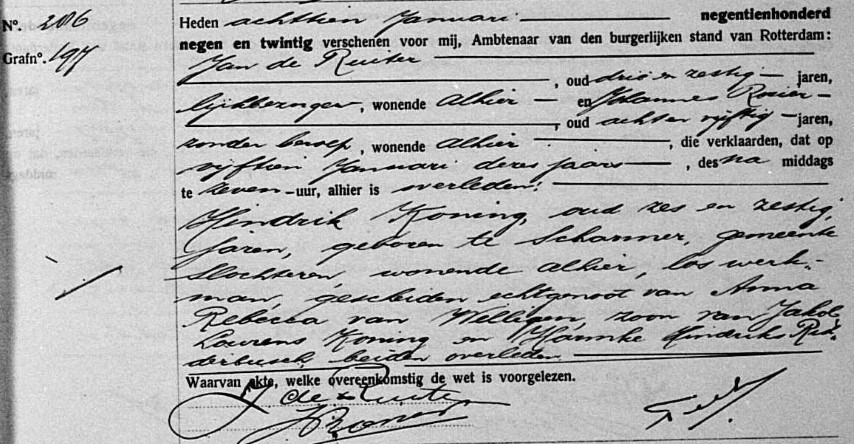 Nº. 206
Grafnº. 197
Heden achttien Januari negentienhonderd
negen en twintig verschenen voor mij, Ambtenaar van den burgerlijken stand van Rotterdam:
Jan de Ruiter
, oud drie en zestig jaren,
lijkbezorger, wonende alhier en Johannes Rosier
, oud acht en vijftig jaren,
zonder beroep, wonende alhier, die verklaarden, dat op
vijftien Januari dezes jaars, des na middags
te zeven uur, alhier is overleden:
Hindrik Koning, oud zes en zestig
jaren, geboren te Scharmer, gemeente
Slochteren, wonende alhier, los werk-
man, gescheiden echtgenoot van Anna
Rebecca van Willigen, zoon van Jakob
Laurens Koning en Hinderiks
derbusch, beiden overleden
Waarvan akte, welke overeenkomstig de wet is voorgelezen.
J de Ruiter